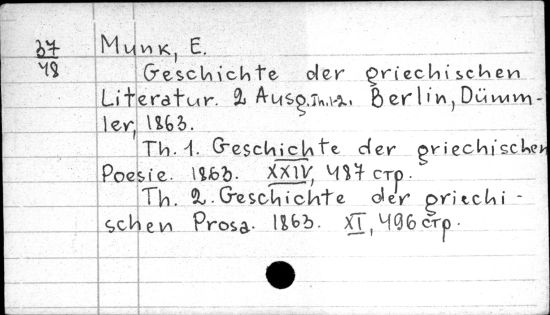 37
48
Munk, E.
Geschichte der griechischen
Literatur. 2 Ausg. Th. 1-2. Berlin, Dümm-
ler, 1863.
Th. 1. Geschichte der griechischen
Poesie. 1863. XXIV, 487 стр.
Th. 2. Geschichte der griechi-
schen Prosa. 1863. XI, 496 стр.